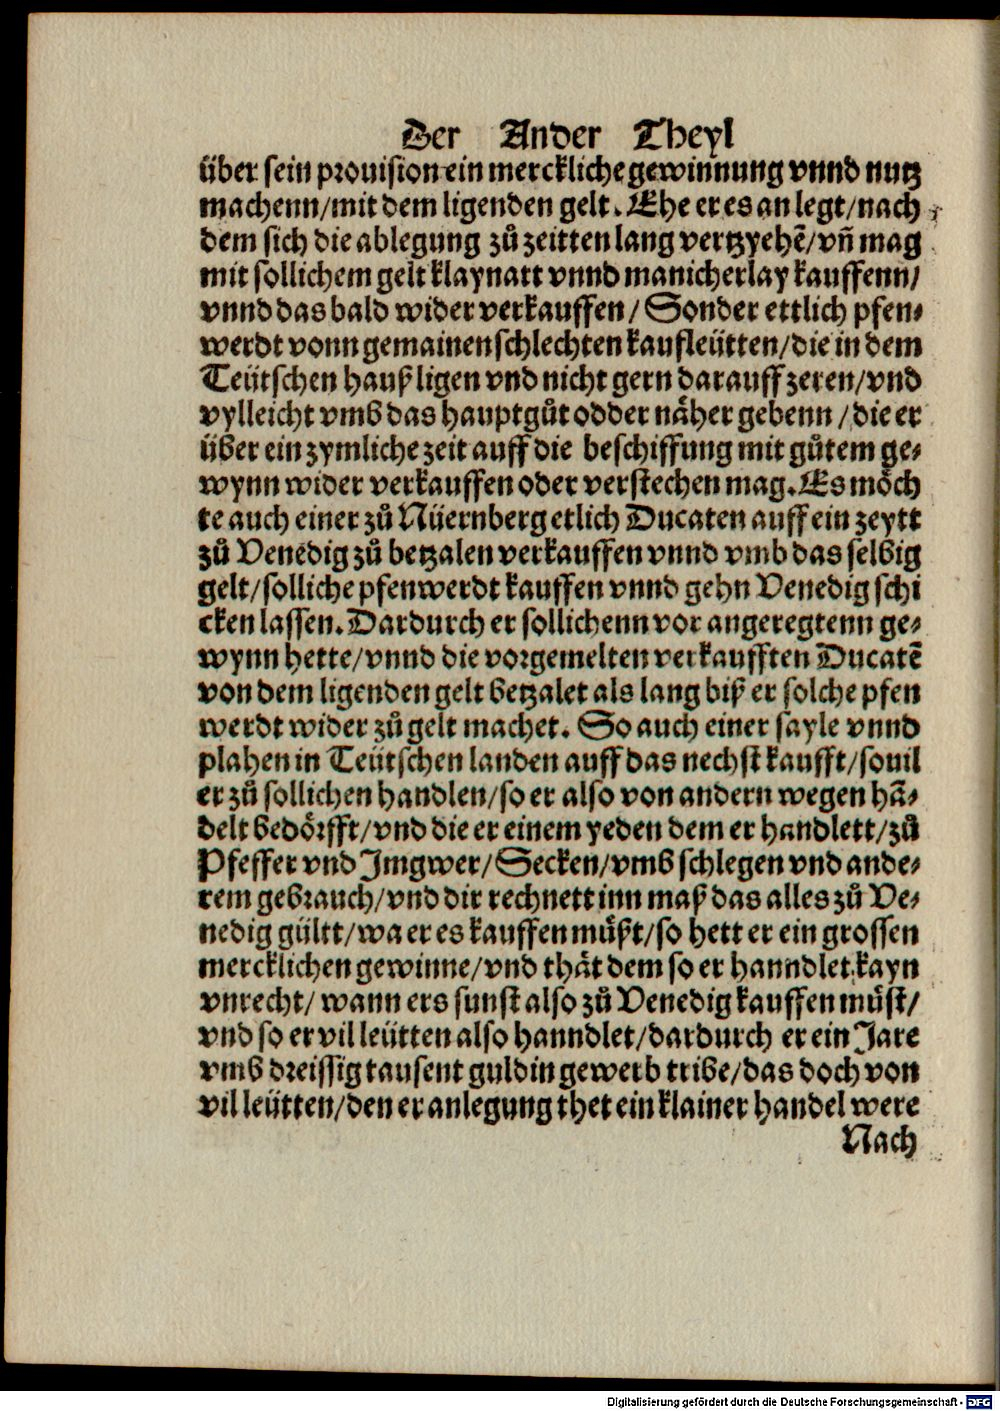 Der Ander Theyl
über sein prouision ein merckliche gewinnung vnnd nutz
machenn/mit dem ligenden gelt. Ehe er es an legt/nach
dem sich die ablegung zů zeitten lang vertzyehẽ/vñ mag
mit sollichem gelt klaynatt vnnd manicherlay kauffenn/
vnnd das bald wider verkauffen/ Sonder ettlich pfen⸗
werdt vonn gemainen schlechten kaufleütten/die in dem
Teütschen hauß ligen vnd nicht gern darauff zeren/vnd
vylleicht vmb das hauptgůt odder näher gebenn/die er
über ein zymliche zeit auff die beschiffung mit gůtem ge⸗
wynn wider verkauffen oder verstechen mag. Es möch
te auch einer zů Nüernberg etlich Ducaten auff ein zeytt
zů Venedig zů betzalen verkauffen vnnd vmb das selbig
gelt/solliche pfenwerdt kauffen vnnd gehn Venedig schi
cken lassen. Dardurch er sollichenn vor angeregtenn ge⸗
wynn hette/vnnd die vorgemelten verkaufften Ducatẽ
von dem ligenden gelt betzalet als lang biß er solche pfen
werdt wider zů gelt machet. So auch einer sayle vnnd
plahen in Teütschen landen auff das nechst kaufft/souil
er zů sollichen handlen/so er also von andern wegen hã⸗
delt bedörfft/vnd die er einem yeden dem er handlett/zů
Pfeffer vnd Jmgwer/Secken/vmb schlegen vnd ande⸗
rem gebrauch/vnd dir rechnett inn maß das alles zů Ve⸗
nedig gültt/wa er es kauffen müßt/so hett er ein grossen
mercklichen gewinne/vnd thät dem so er hanndlet kayn
vnrecht/ wann ers sunst also zů Venedig kauffen müst/
vnd so er vil leütten also hanndlet/dardurch er ein Jare
vmb dreissig tausent guldin gewerb tribe/das doch von
vil leütten/den er anlegung thet ein klainer handel were
Nach
Digitalisierung gefördert durch die Deutsche Forschungsgemeinschaft - DFG